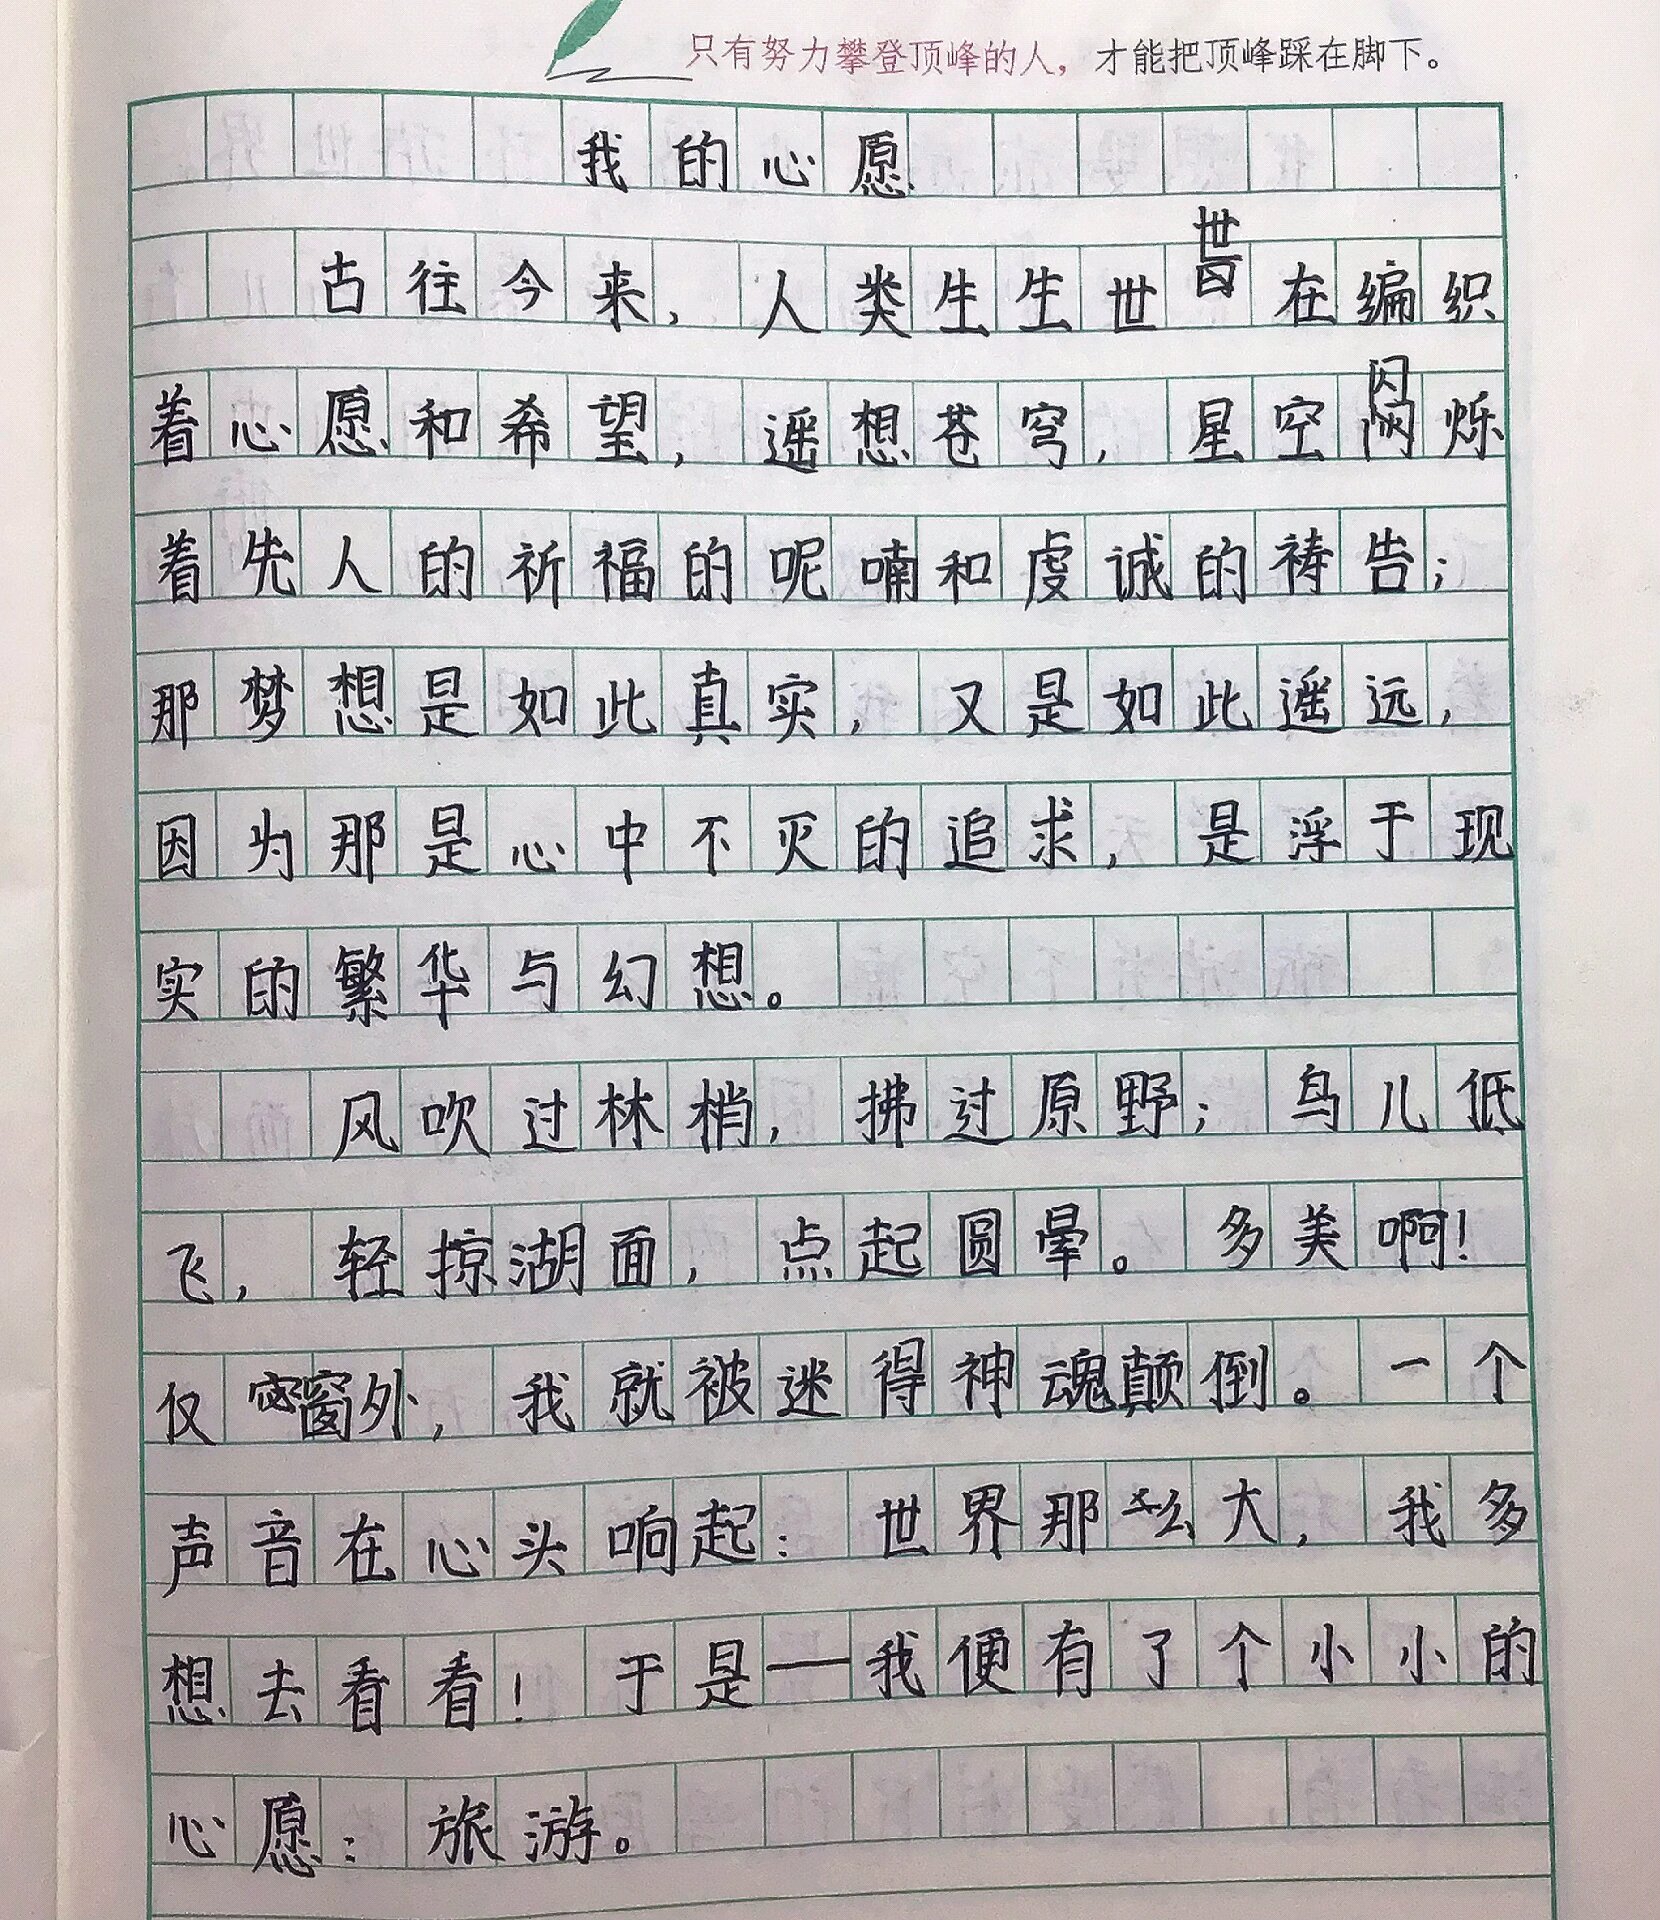 只有努力攀登顶峰的人，才能把顶峰踩在脚下。
我的心愿
古往今来，人类生生世世在编织
着心愿和希望，遥想苍穹，星空闪烁
着先人的祈福的呢喃和虔诚的祷告；
那梦想是如此真实，又是如此遥远，
因为那是心中不灭的追求，是浮于现
实的繁华与幻想。
风吹过林梢，拂过原野；鸟儿低
飞，轻掠湖面，点起圆晕。多美啊！
仅窗外，我就被迷得神魂颠倒。一个
声音在心头响起：世界那么大，我多
想去看看！于是——我便有了个小小的
心愿：旅游。